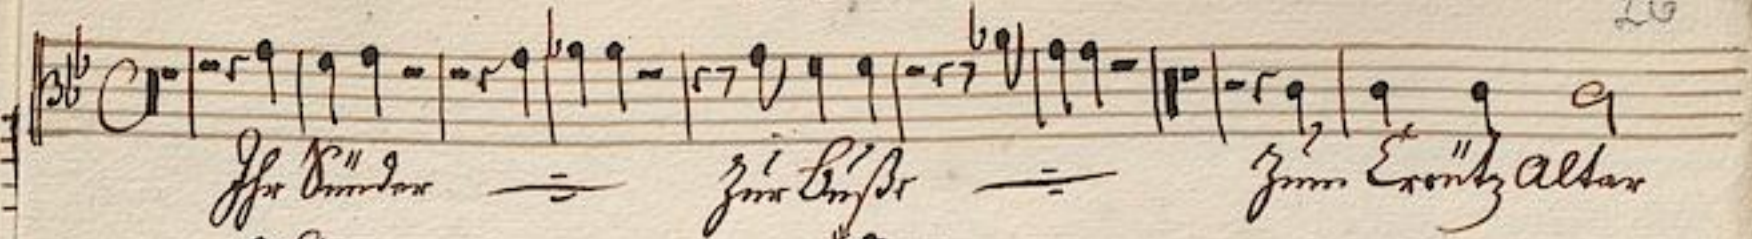 Ihr Sünder zur Buße zum Creütz Altar